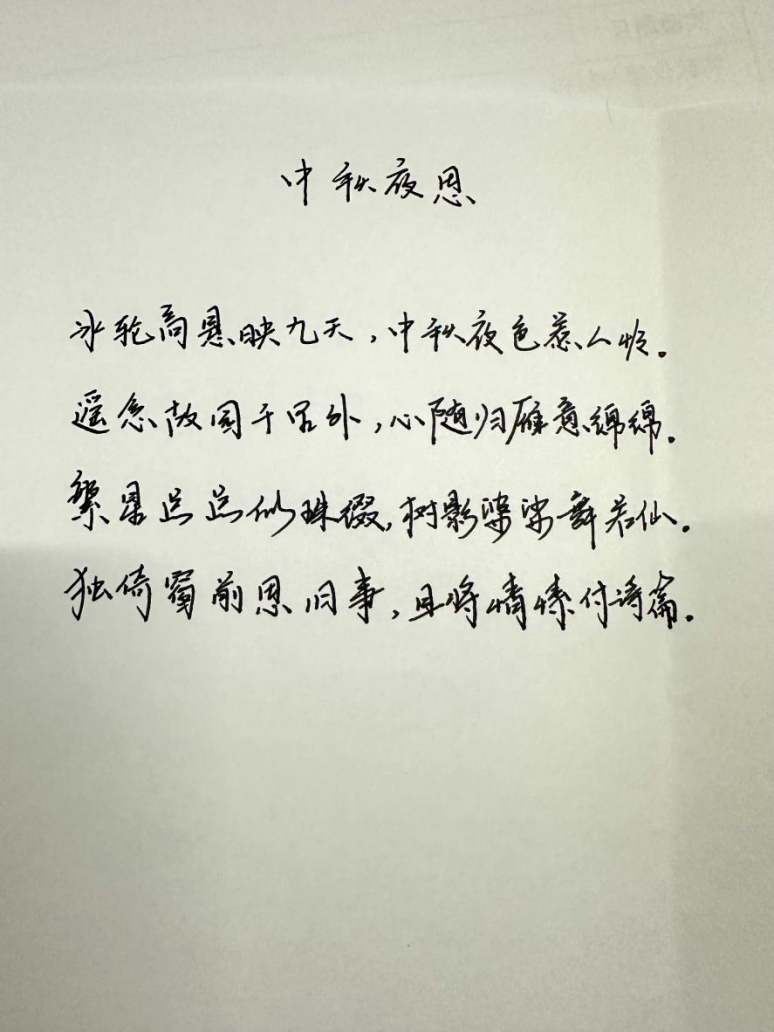 中秋夜思
冰轮高悬映九天,中秋夜色惹人怜。
遥念故园千里外,心随归雁意绵绵。
繁星点点似珠缀,树影婆娑舞若仙。
独倚窗前思旧事,且将情愫付诗篇。